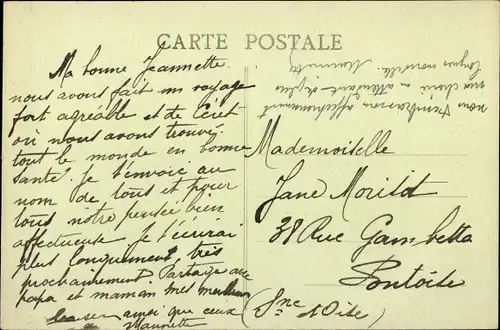 CARTE POSTALE
Ma bonne Jeannette.
nous avons fait un voyage
fort agréable et de Céret
où nous avons trouvé
tout le monde en bonne
santé. Je t'envoie au
nom de tous et pour
tous notre pensée bien
affectueuse. Je t'écrirai
plus longuement, très
prochainement. Partage avec
papa et maman mes meilleurs
baisers ainsi que ceux
de Maurette
nous t'embrassons affectueusement
ma chérie en attendant de plus
longues nouvelles.
Mademoiselle
Jane Morisot
38 Rue Gambetta
Pontoise
(Sne & Oise)